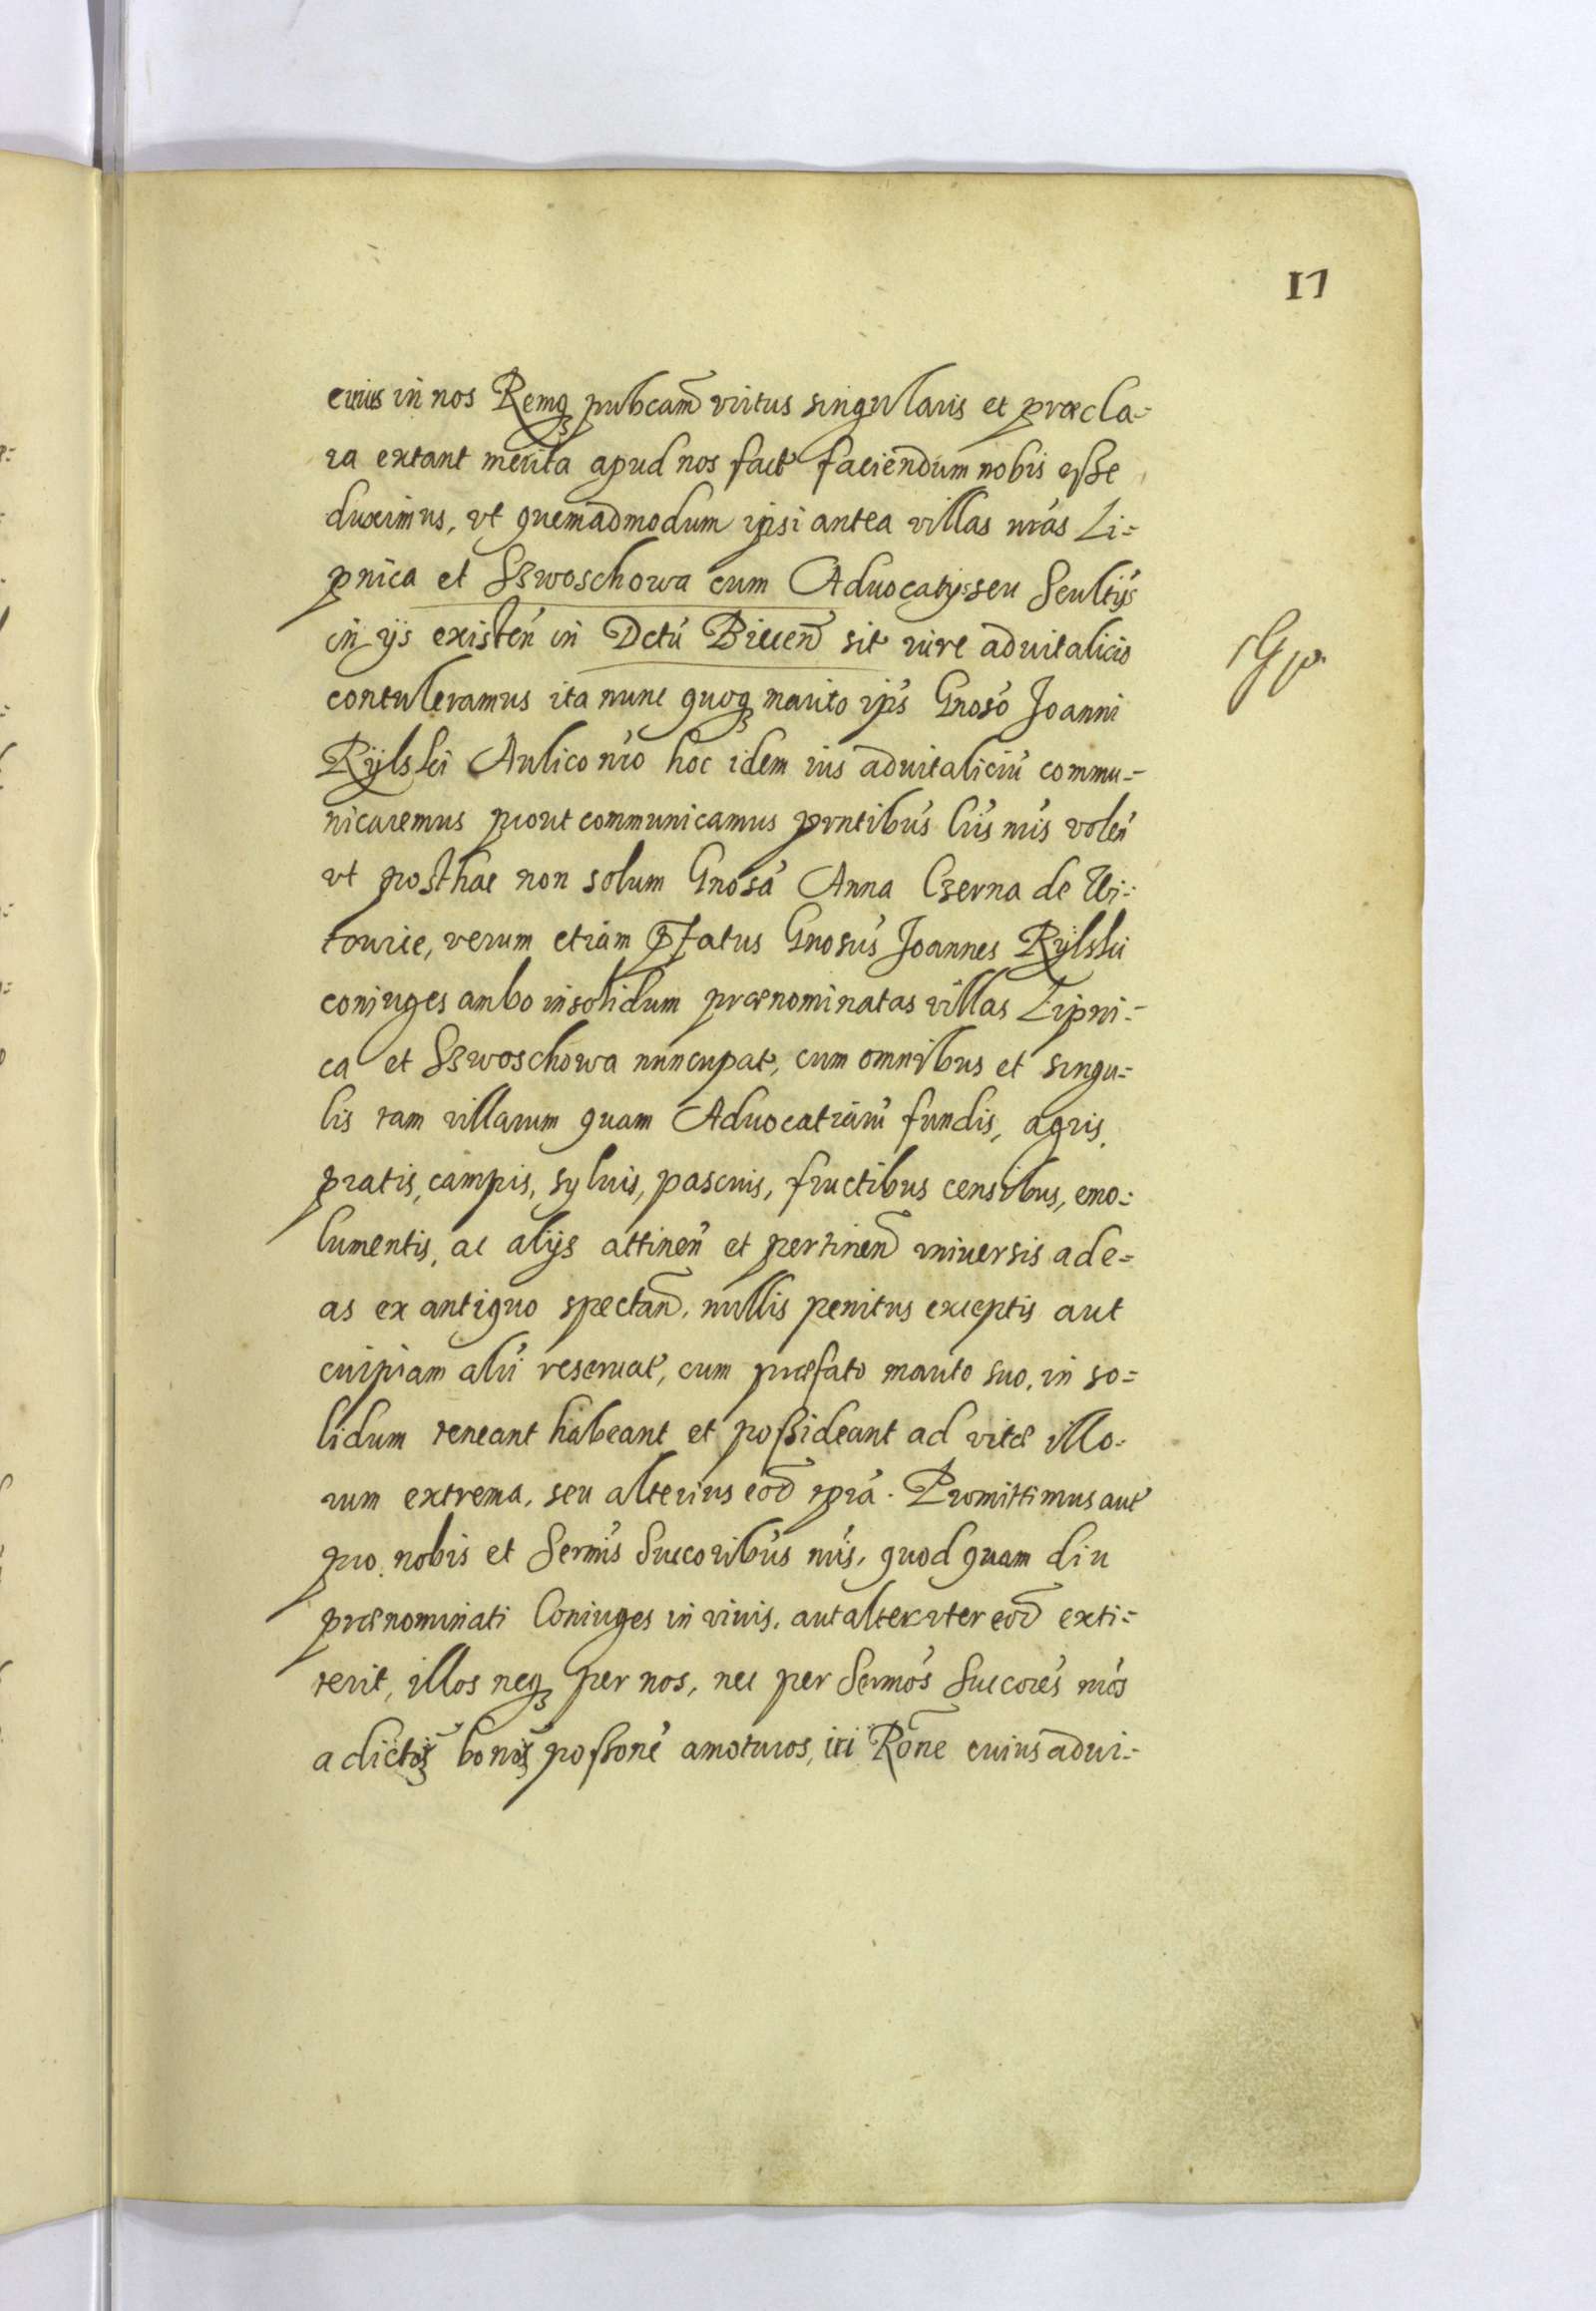 17
cuius in nos Remq₃ pubcam̄ virtus singularis et præcla=
ra extant merita apud nos fact' faciendum nobis esse
duximus, vt quemadmodum ipsi antea villas nr̄as Li=
pnica et Szwoschowa cum Aduocatijs seu Scultijs
in ijs existeñ in Dctũ Biecen̄ sit iure aduitalicio
contuleramus ita nunc quoq₃ marito ip̄s Gnosó Joanni
Rylski Aulico nr̄o hoc idem ius aduitaliciũ commu=
nicaremus prout communicamus prntibús Lr̄is nr̄is voleñ
vt posthac non solum Gnosá Anna Czerna de Wi=
towice, verum etiam Pfatus Gnosús Joannes Rÿlski
coniuges ambo insolidum prænominatas villas Lipni=
ca et Szwoschowa nuncupat', cum omnibus et singu=
lis tam villarum quam Aduocatiarũ fundis, agris,
pratis, campis, syluis, pascuis, fructibus censibus, emo=
lumentis, ac alijs attineñ et pertinen̄ vniuersis ad e=
as ex antiquo spectan̄, nullis penitus exceptis aut
cuipiam alij reseruat', cum præfato marito suo, in so=
lidum teneant habeant et possideant ad vitæ illo=
rum extrema, seu alterius eod̄ rp̄ra. Promittimus aut'
pro nobis et Sermís Succoribús nr̄is, quod quam diu
prænominati Coniuges in viuis, aut alteruter eod̄ exti=
terit, illos neq₃ per nos, nec per Sermós Succorés nr̄ós
a dictoꝝ bonoꝝ possoné amoturos, iri Rōne cuius adui=